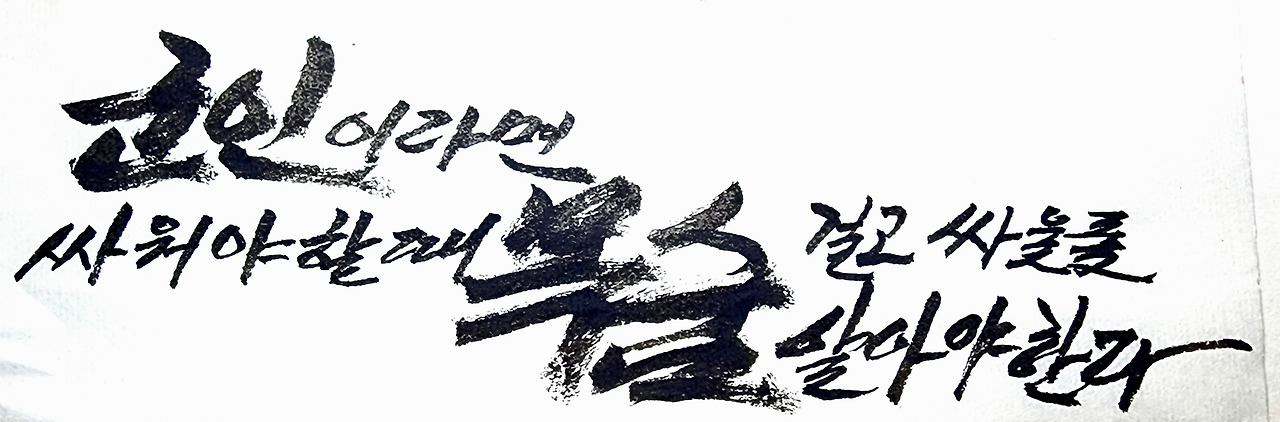 군인이라면
싸워야할때 목숨 걸고 싸울줄
알아야한다